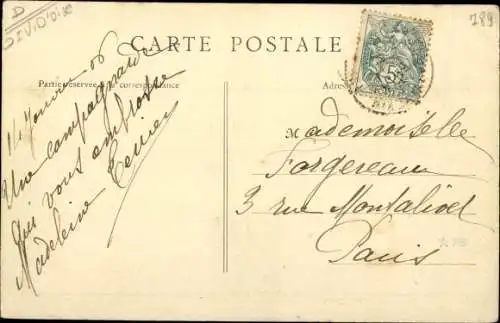 D
S.IV.D'oise
789
CARTE POSTALE
Partie réservée à la correspondance
Adres
14 Janvier 06
Une campagnarde
qui vous embrasse
Madeleine
Mademoiselle
Forgereau
3 rue Montalivet
Paris